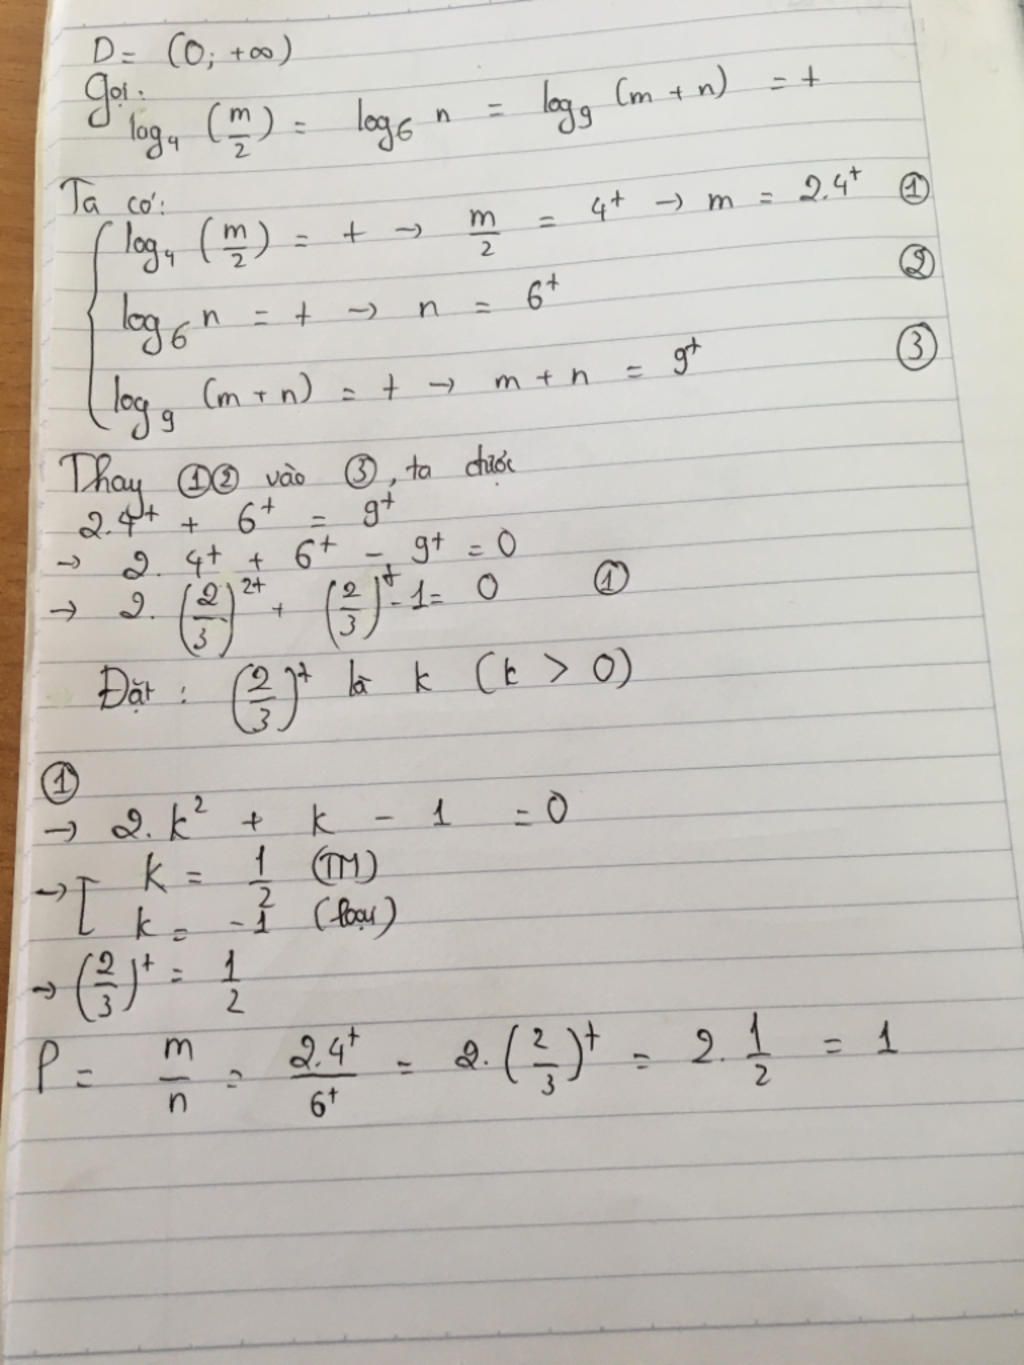 D = (0; +∞)
Gọi:
log₄ (m/2) = log₆ n = log₉ (m + n) = t
Ta có:
log₄ (m/2) = t → m/2 = 4^t → m = 2.4^t ①
log₆ n = t → n = 6^t ②
log₉ (m + n) = t → m + n = 9^t ③
Thay ①② vào ③, ta được
2.4^t + 6^t = 9^t
→ 2. 4^t + 6^t - 9^t = 0
→ 2. (2/3)^2t + (2/3)^t - 1 = 0 ①
Đặt : (2/3)^t là k (k > 0)
①
→ 2.k² + k - 1 = 0
→ [ k = 1/2 (TM)
k = -1 (loại)
→ (2/3)^t = 1/2
P = m/n = 2.4^t/6^t = 2.(2/3)^t = 2.1/2 = 1